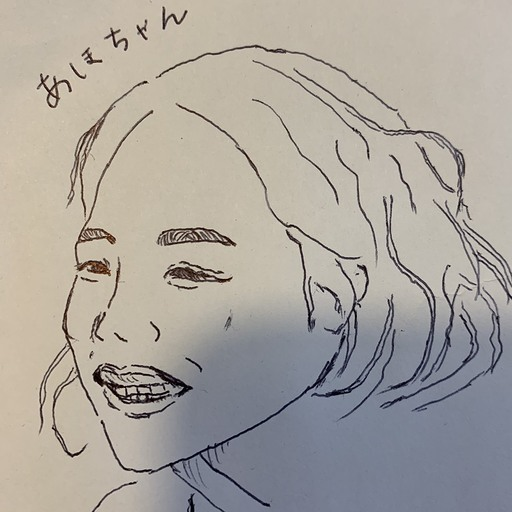 あほちゃん